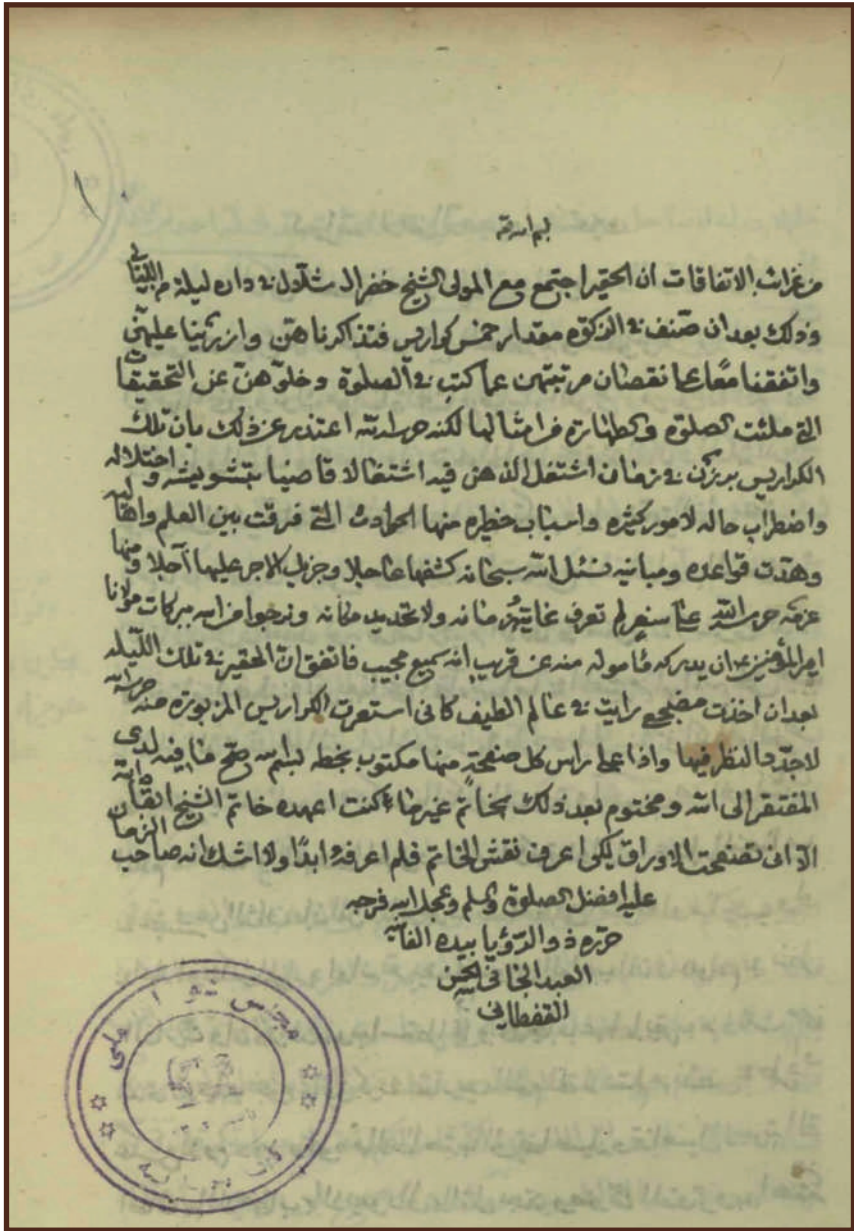 بسم الله
من غرائب الاتفاقات ان الحقير اجتمع مع المولى الشيخ خضر ال شلال في داره ليلة من الليالي
وذلك بعد ان صنف في الزكوة مقدار خمس كراريس فتذاكرنا هن وازرينا عليهن
واتفقنا معًا على نقصان مرتبتهن عما كتب في الصلوة وخلوهن عن التحقيقات
التي ملئت الصلوة والطهارة من امثالها لكنه حرسه الله اعتذر عن ذلك بان تلك
الكراريس برزن في زمان اشتغل الذهن فيه اشتغالا قاضيا بتشويشه واختلاله
واضطراب حاله لامور كثيره واسباب خطيره منها الحوادث التي فرقت بين العلم واهاليه
وهدت قواعده ومبانيه نسئل الله سبحانه كشفها عاجلا وجزيل الاجر عليها آجلا ومنها
عزمه حرسه الله على سفر لم تعرف غاية زمانه ولا تحديد مكانه ونرجوا من الله ببركات مولانا
امير المؤمنين ان يدركه مأموله منه عن قريب انه سميع مجيب فاتفق ان الحقير في تلك الليله
بعد ان اخذت مضجعي رايت في عالم الطيف كاني استعرت الكراريس المزبورة منه حرسه الله
لاجدد النظر فيها واذا على راس كل صفحة منها مكتوب بخطه بسم الله صح ما فيه لدى
المفتقر الى الله ومختوم بعد ذلك بخاتم غير ما كنت اعهده خاتم الشيخ ابقاه الله
الا اني تصفحت الاوراق لكي اعرف نقش الخاتم فلم اعرفه ابدًا ولا اشك انه صاحب الزمان
عليه افضل الصلوة والسلم وعجل الله فرجه
حرره ذو الرؤيا بيده الفانية
العبد الجاني الحسن
القفطاني
مجلس شورا ملى